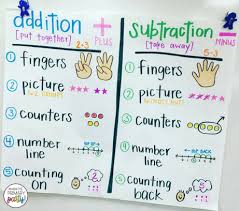 addition + PLUS
[put together] 2+3
① fingers
② picture
③ counters
④ number line
⑤ counting on
subtraction - MINUS
[take away] 5-3
① fingers
② picture
③ counters
④ number line
⑤ counting back